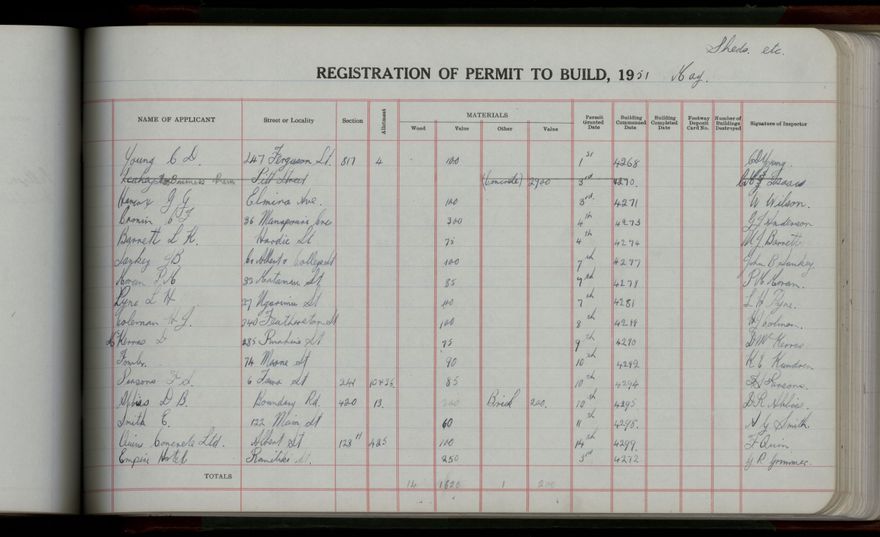 Sheds. etc.
REGISTRATION OF PERMIT TO BUILD, 1951 May.
NAME OF APPLICANT Street or Locality Section Allotment MATERIALS Wood Value Other Value Permit Granted Date Building Commenced Date Building Completed Date Footway Deposit Card No. Number of Buildings Destroyed Signature of Inspector
Young C D. 247 Ferguson St. 517 4 100 1st 4268 C D Young.
Pitt Street (Concrete) 2900 3rd 4270. Isaacs
G G Elmira Ave. 100 3rd 4271 W Wilson.
Cromin 36 Manapouri Cres 300 4th 4273 Anderson
Barnett L K. Hardie St 75 4th 4274 Barnett
Sankey J B Albert & College St 100 7th 4277 John B Sankey.
Horan P K 85 7th 4278 P K Horan.
Pyne L H 27 Ngarimu St 100 7th 4281 L H Pyne.
Coleman H J. 240 Featherston St 100 8th 4289 H J Colman.
McKerras D 285 75 9th 4290 D McKerras
74 Marne St 90 10th 4292 K E
Parsons F S. 6 Fawn St 241 85 10th 4294 Parsons.
D B. Boundary Rd. 420 13. 200 Brick 200. 10th 4295 D R
Smith E. 122 Main St 60 11th 4298. A G Smith.
Quin Concrete Ltd. Albert St 100 14th 4299. F Quin.
Empire Hotel St. 250 3rd 4272
TOTALS 14 1620 1 200